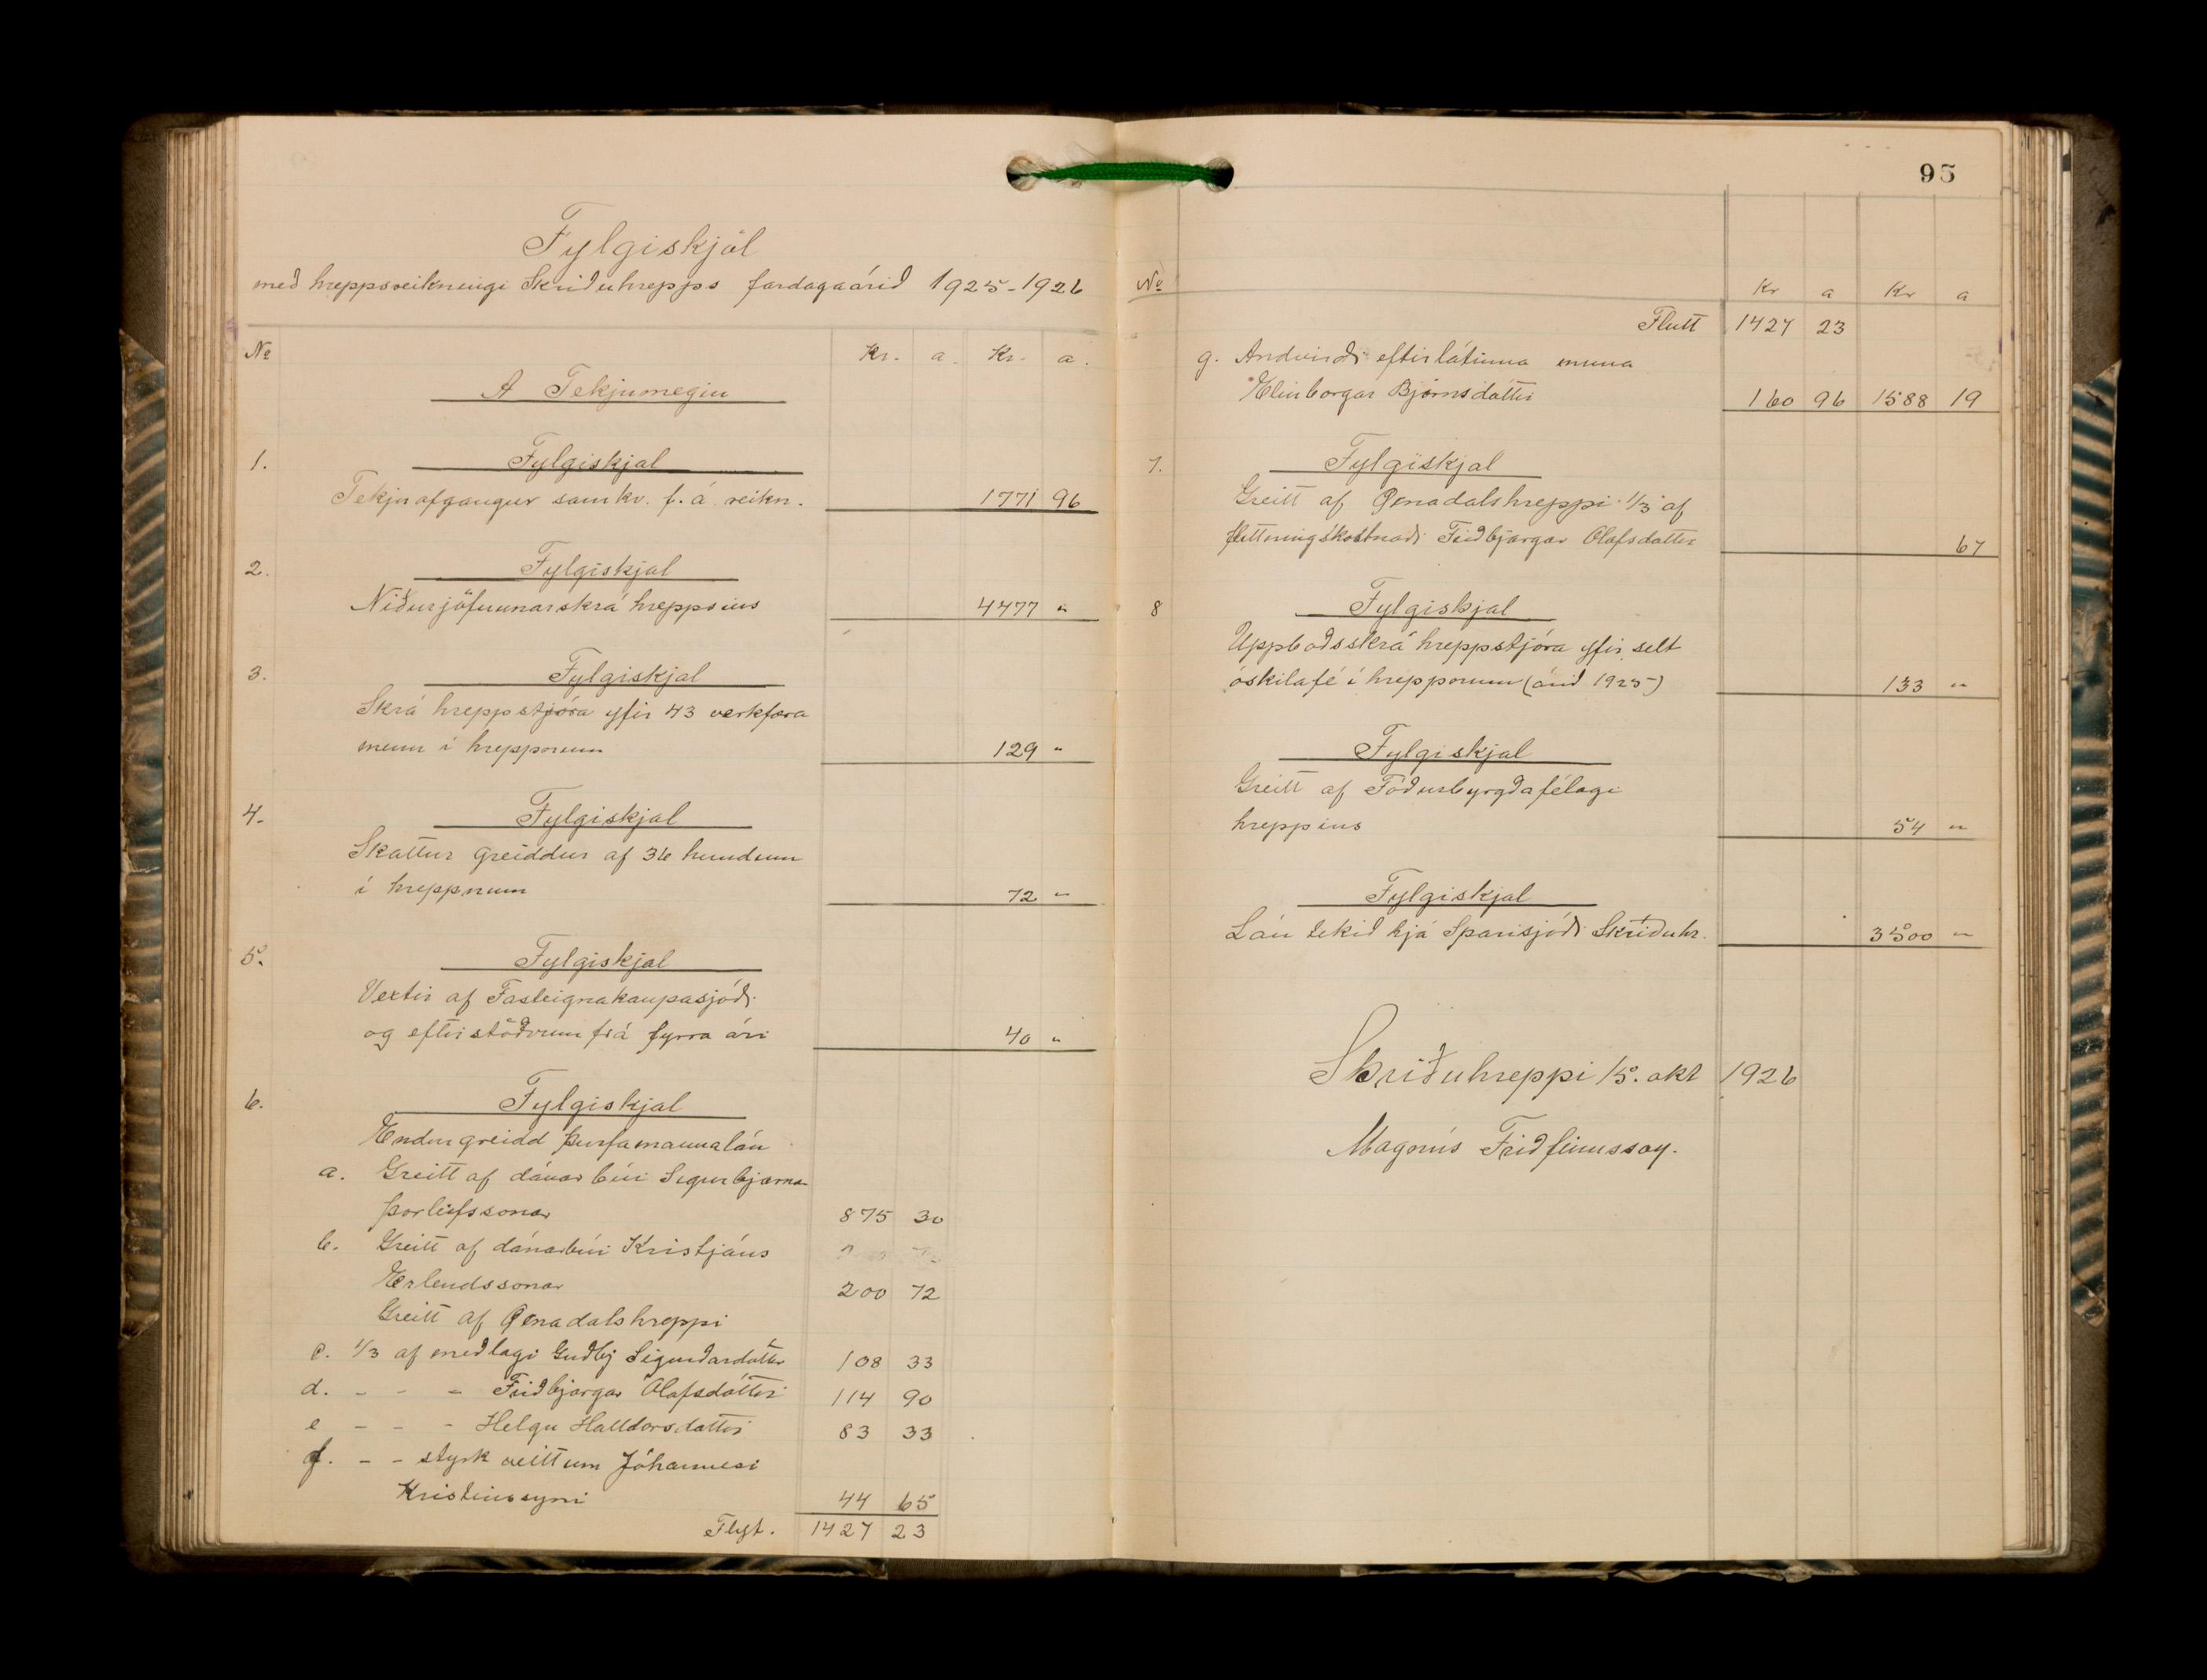 Fylgiskjöl
með hreppsreikningi Skriðuhrepps fardagaárið 1925-1926
No Kr. a. Kr. a.
A Tekjumegin
1. Fylgiskjal
Tekjuafgangur samkv. f. á. reikn. 1771 96
2. Fylgiskjal
Niðurjöfnunarskrá hreppsins 4477 "
3. Fylgiskjal
Skrá hreppstjóra yfir 43 verkfæra
menn í hreppnum 129 "
4. Fylgiskjal
Skattur greiddur af 36 hundum
í hreppnum 72 "
5. Fylgiskjal
Vextir af Fasteignakaupasjóði
og eftirstöðvum frá fyrra ári 40 "
6. Fylgiskjal
Endurgreidd þurfamannalán
a. Greitt af dánarbúi Sigurbjarna
Þorleifssonar 875 30
b. Greitt af dánarbúi Kristjáns
Erlendssonar 200 72
Greitt af Öxnadalshreppi
c. 1/3 af meðlagi Guðbj Sigurðardóttur 108 33
d. - - - Friðbjargar Ólafsdóttir 114 90
e - - - Helgu Halldórsdóttir 83 33
f. - - styrk veittum Jóhannesi
Kristinssyni 44 65
Flyt. 1427 23
95
No Kr a Kr a
Flutt 1427 23
g. Andvirði eftirlátinna muna
Elinborgar Björnsdóttir 160 96 1588 19
7. Fylgiskjal
Greitt af Öxnadalshreppi 1/3 af
flutningskostnaði Friðbjargar Olafsdottir 67
8 Fylgiskjal
Uppboðsskrá hreppstjóra yfir selt
óskilafé í hreppnum (árið 1925) 133 "
Fylgiskjal
Greitt af Fóðurbyrgðafélagi
hreppins 54 "
Fylgiskjal
Lán tekið hjá Sparisjóði Skriðuhr. 3500 "
Skriðuhreppi 15. okt 1926
Magnús Friðfinnsson.